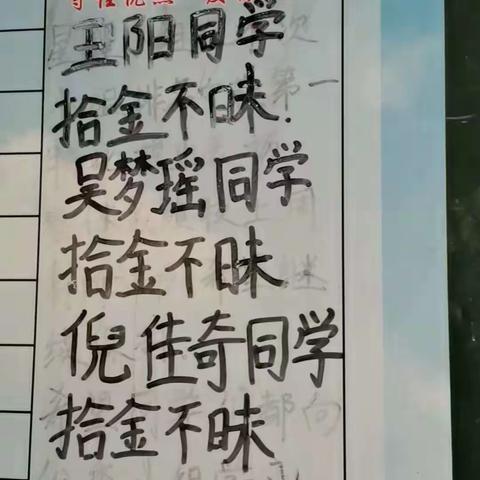 王阳同学
拾金不昧.
吴梦瑶同学
拾金不昧
倪佳奇同学
拾金不昧